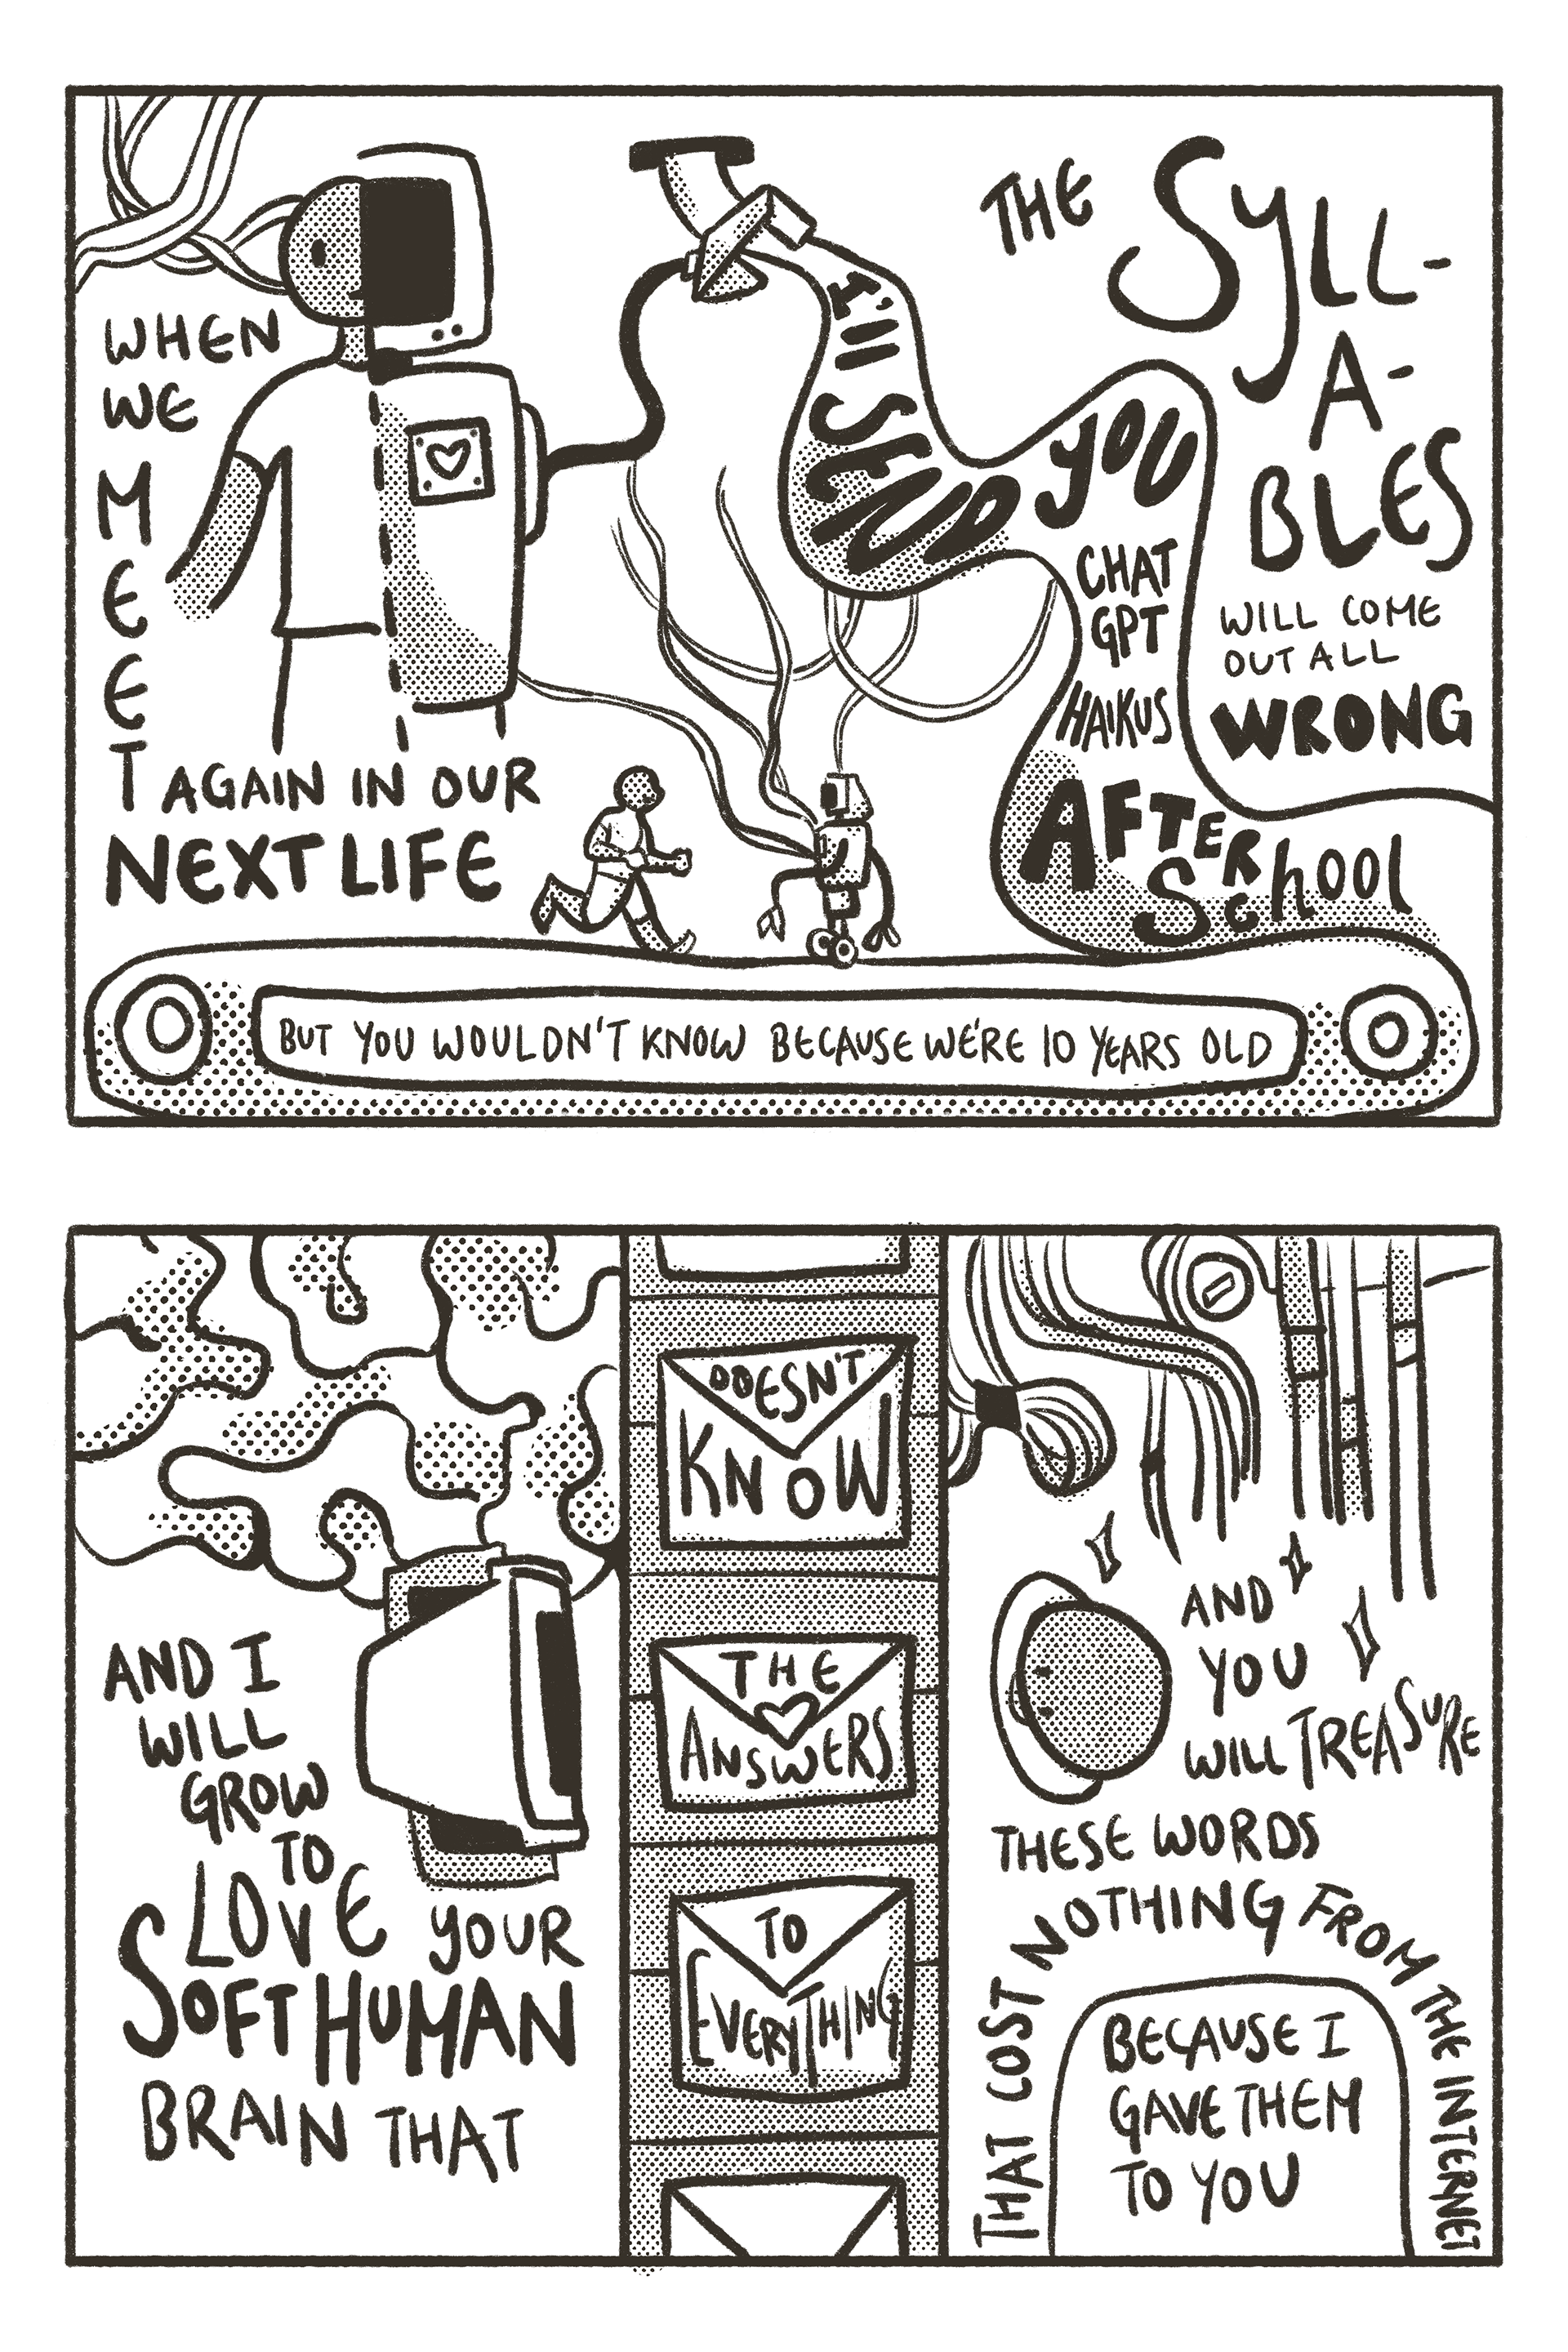 WHEN
WE
MEET AGAIN IN OUR
NEXT LIFE
I'll SEND YOU
CHAT
GPT
HAIKUS
AFTER
School
THE SYLL-
A-
BLES
WILL COME
OUT ALL
WRONG
BUT YOU WOULDN'T KNOW BECAUSE WE'RE 10 YEARS OLD
AND I
WILL
GROW
TO
LOVE YOUR
SOFT HUMAN
BRAIN THAT
DOESN'T
KNOW
THE
ANSWERS
TO
EVERYTHING
AND
YOU
WILL TREASURE
THESE WORDS
THAT COST NOTHING FROM THE INTERNET
BECAUSE I
GAVE THEM
TO YOU